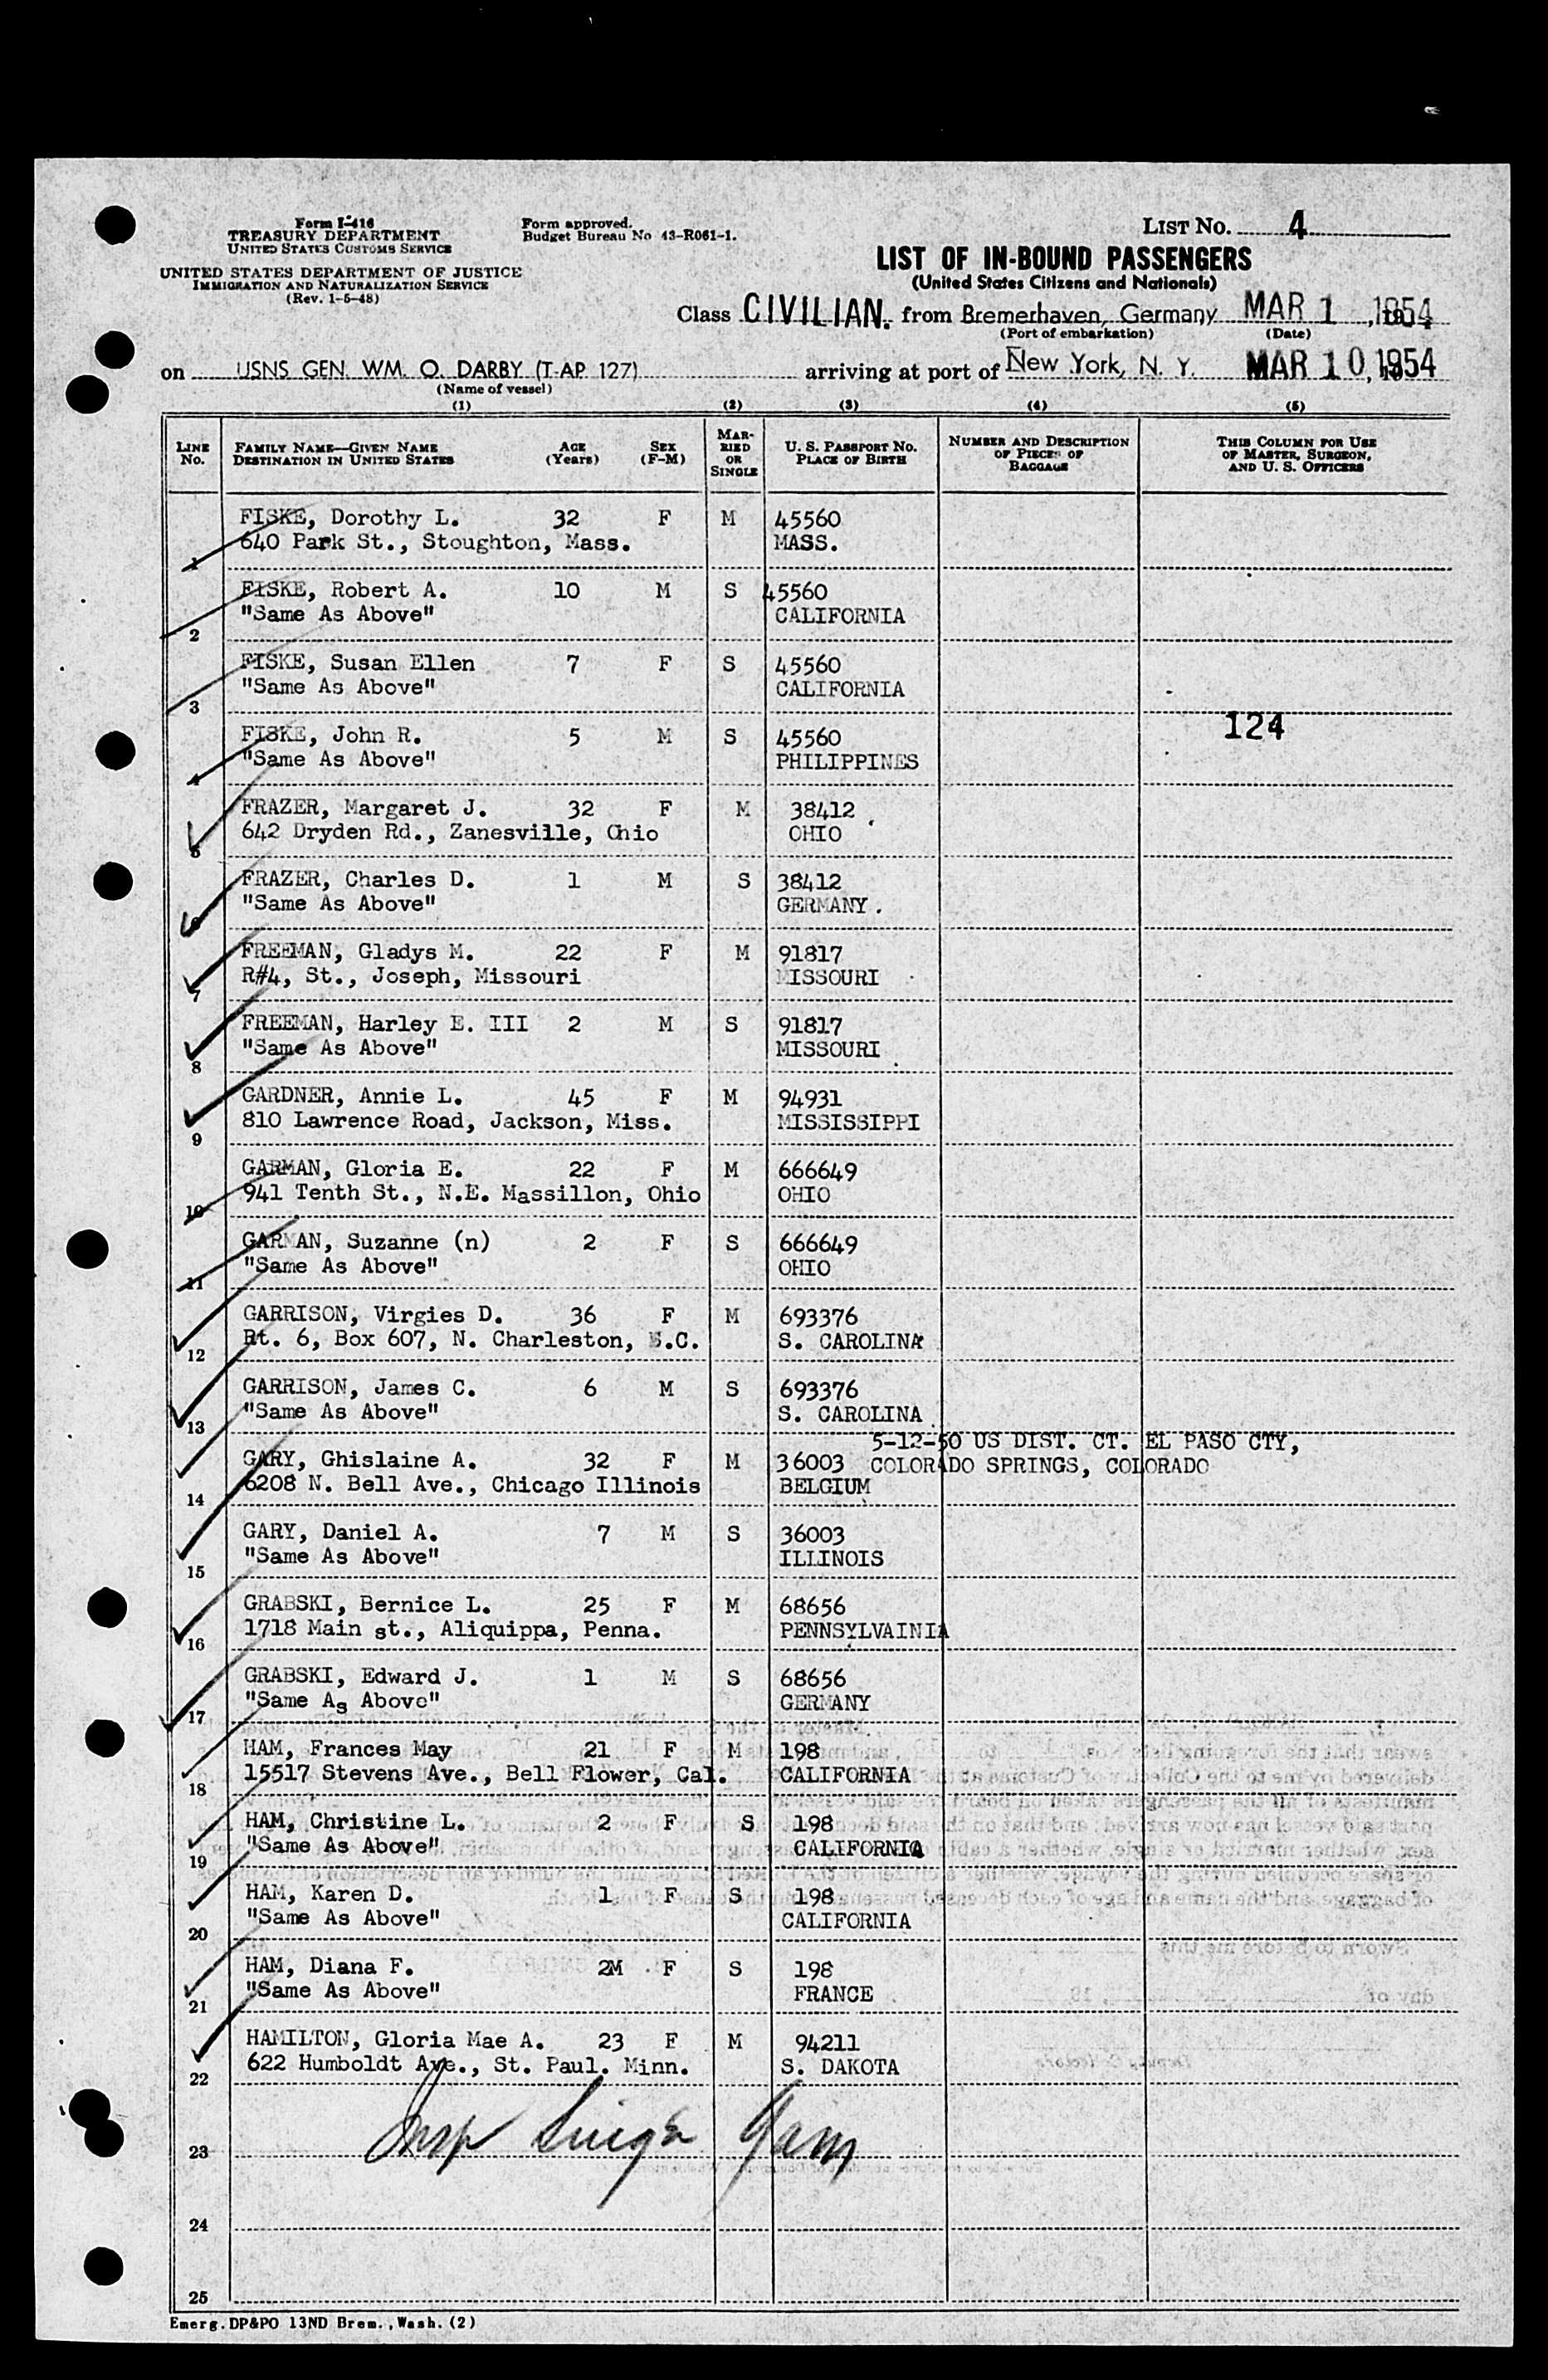 Form I-416
TREASURY DEPARTMENT
UNITED STATES CUSTOMS SERVICE
UNITED STATES DEPARTMENT OF JUSTICE
IMMIGRATION AND NATURALIZATION SERVICE
(Rev. 1-5-48)
Form approved.
Budget Bureau No 43-R061-1.
LIST No. 4
LIST OF IN-BOUND PASSENGERS
(United States Citizens and Nationals)
Class CIVILIAN. from Bremerhaven, Germany MAR 1, 1954
(Port of embarkation) (Date)
on USNS GEN. WM. O. DARBY (T-AP 127) arriving at port of New York, N. Y. MAR 10, 1954
(Name of vessel)
(1) (2) (3) (4) (5)
LINE No. FAMILY NAME—GIVEN NAME DESTINATION IN UNITED STATES AGE (Years) SEX (F-M) MARRIED OR SINGLE U. S. PASSPORT No. PLACE OF BIRTH NUMBER AND DESCRIPTION OF PIECES OF BAGGAGE THIS COLUMN FOR USE OF MASTER, SURGEON, AND U. S. OFFICERS
FISKE, Dorothy L. 32 F M 45560
1 640 Park St., Stoughton, Mass. MASS.
FISKE, Robert A. 10 M S 45560
2 "Same As Above" CALIFORNIA
FISKE, Susan Ellen 7 F S 45560
3 "Same As Above" CALIFORNIA
124
FISKE, John R. 5 M S 45560
4 "Same As Above" PHILIPPINES
FRAZER, Margaret J. 32 F M 38412
5 642 Dryden Rd., Zanesville, Ohio OHIO
FRAZER, Charles D. 1 M S 38412
6 "Same As Above" GERMANY.
FREEMAN, Gladys M. 22 F M 91817
7 R#4, St., Joseph, Missouri MISSOURI
FREEMAN, Harley E. III 2 M S 91817
8 "Same As Above" MISSOURI
GARDNER, Annie L. 45 F M 94931
9 810 Lawrence Road, Jackson, Miss. MISSISSIPPI
GARMAN, Gloria E. 22 F M 666649
10 941 Tenth St., N.E. Massillon, Ohio OHIO
GARMAN, Suzanne (n) 2 F S 666649
11 "Same As Above" OHIO
GARRISON, Virgies D. 36 F M 693376
12 Rt. 6, Box 607, N. Charleston, S.C. S. CAROLINA
GARRISON, James C. 6 M S 693376
13 "Same As Above" S. CAROLINA
5-12-50 US DIST. CT. EL PASO CTY,
GARY, Ghislaine A. 32 F M 36003 COLORADO SPRINGS, COLORADO
14 6208 N. Bell Ave., Chicago Illinois BELGIUM
GARY, Daniel A. 7 M S 36003
15 "Same As Above" ILLINOIS
GRABSKI, Bernice L. 25 F M 68656
16 1718 Main st., Aliquippa, Penna. PENNSYLVAINIA
GRABSKI, Edward J. 1 M S 68656
17 "Same As Above" GERMANY
HAM, Frances May 21 F M 198
18 15517 Stevens Ave., Bell Flower, Cal. CALIFORNIA
HAM, Christine L. 2 F S 198
19 "Same As Above" CALIFORNIA
HAM, Karen D. 1 F S 198
20 "Same As Above" CALIFORNIA
HAM, Diana F. 2M F S 198
21 "Same As Above" FRANCE
HAMILTON, Gloria Mae A. 23 F M 94211
22 622 Humboldt Ave., St. Paul. Minn. S. DAKOTA
23
24
25
Emerg. DP&PO 13ND Brem., Wash. (2)